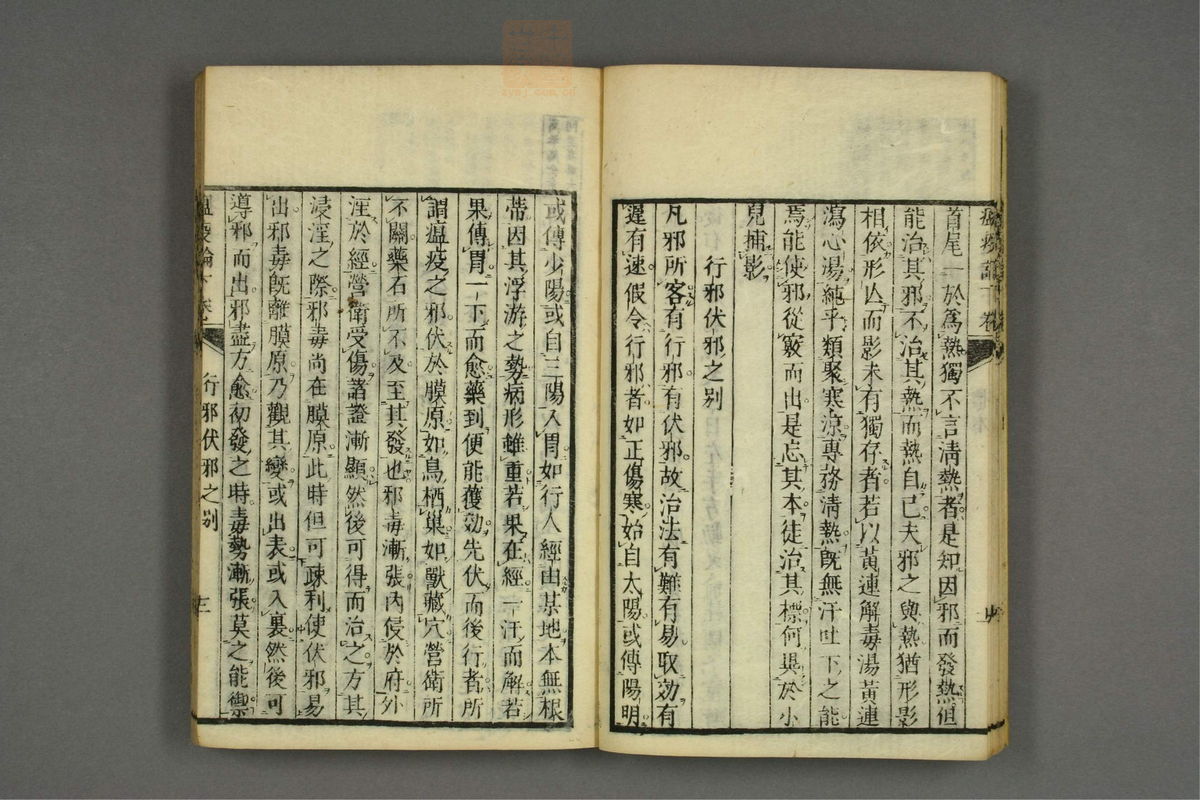 首尾一於為熱獨不言清熱者是知因邪而發熱但
能治其邪不治其熱而熱自已夫邪之與熱猶形影
相依形亾而影未有獨存者若以黃連解毒湯黃連
瀉心湯純乎類聚寒涼專務清熱既無汗吐下之能
焉能使邪從竅而出是忘其本徒治其標何異於小
兒捕影
行邪伏邪之别
凡邪所客有行邪有伏邪故治法有難有易取効有
遲有速假令行邪者如正傷寒始自太陽或傳陽明
或傳少陽或自三陽入胃如行人經由某地本無根
蒂因其浮游之勢病形雖重若果在經一汗而解若
果傳胃一下而愈藥到便能獲効先伏而後行者所
謂瘟疫之邪伏於膜原如鳥栖巢如獸藏穴營衛所
不關藥石所不及至其發也邪毒漸張內侵於府外
淫於經營衛受傷諸證漸顯然後可得而治之方其
浸淫之際邪毒尚在膜原此時但可疎利使伏邪易
出邪毒既離膜原乃觀其變或出表或入裏然後可
導邪而出邪盡方愈初發之時毒勢漸張莫之能禦
瘟疫論下卷
行邪伏邪之别
三